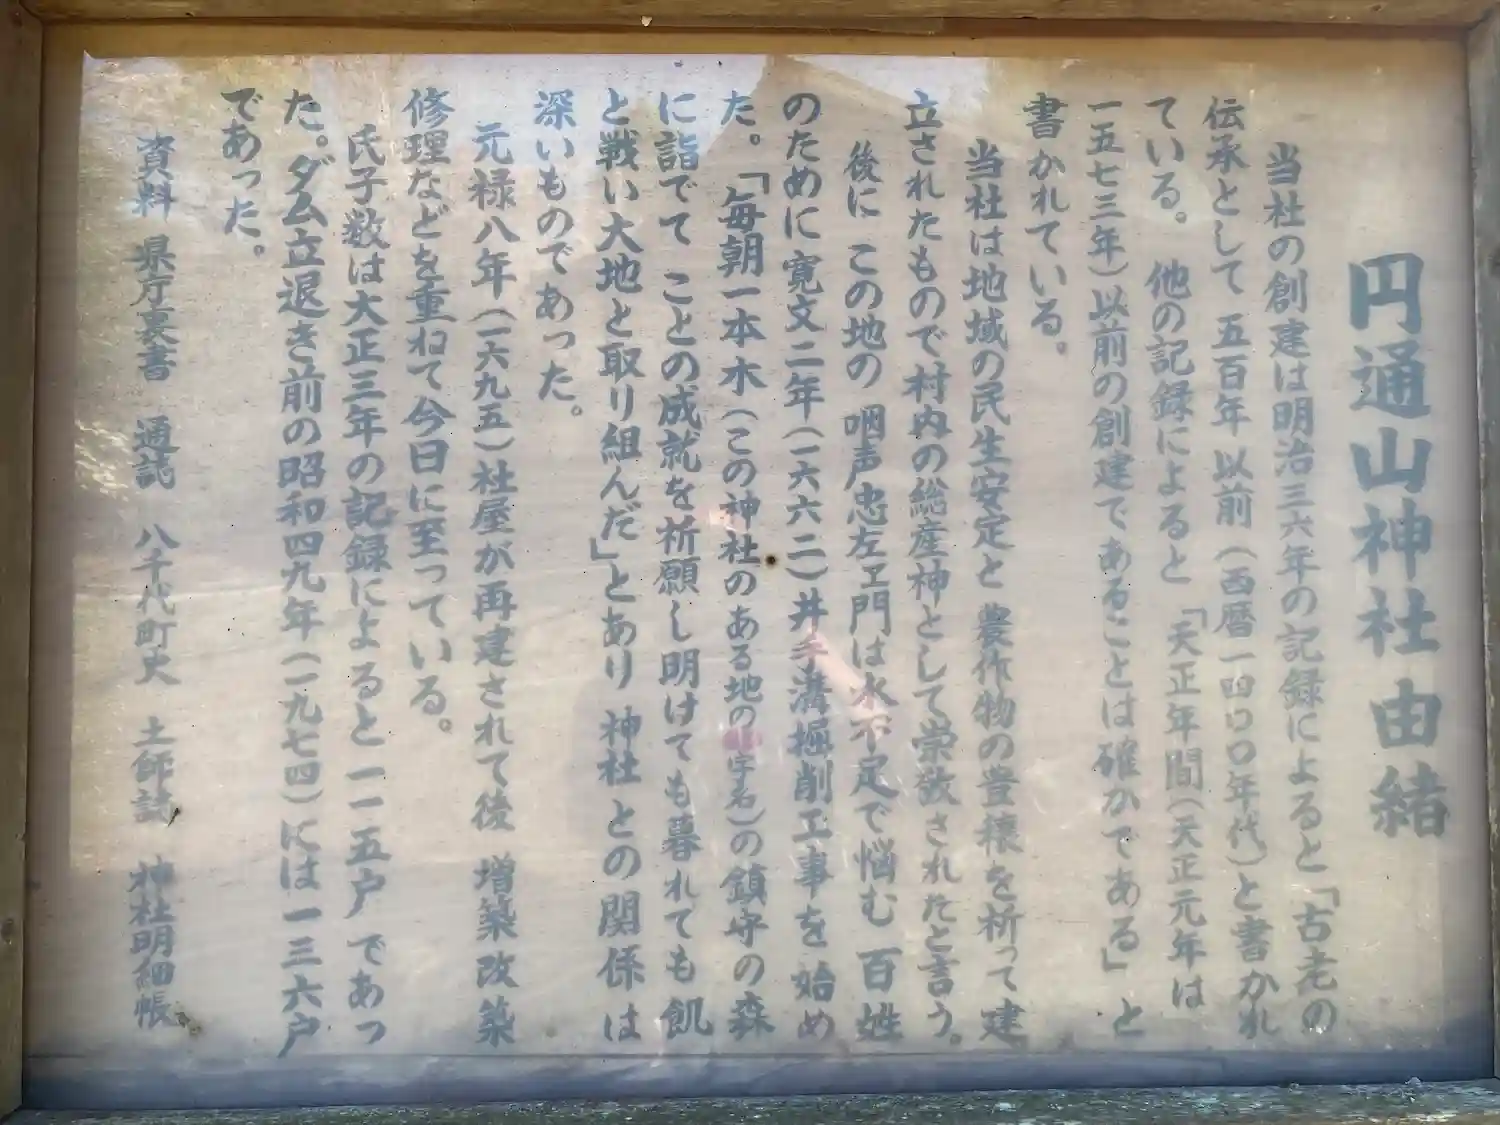 円通山神社 由緒
当社の創建は明治三六年の記録によると「古老の
伝承として 五百年 以前（西暦一四〇〇年代）と書かれ
ている。 他の記録によると 「天正年間（天正元年は
一五七三年）以前の創建であることは確かである」と
書かれている。
当社は地域の民生安定と 農作物の豊穣を祈って建
立されたもので 村内の総産神として崇敬されたと言う。
後に この地の 咽声忠左ヱ門は水不足で悩む 百姓
のために寛文二年（一六六二）井手溝掘削工事を 始め
た。「毎朝一本木（この神社のある地の 字名）の鎮守の森
に詣でて ことの成就を祈願し明けても暮れても飢
と戦い大地と取り組んだ」とあり 神社との関係は
深いものであった。
元禄八年（一六九五）社屋が再建されて後 増築改築
修理などを重ねて今日に至っている。
氏子数は大正三年の記録によると一一五戸 であっ
た。ダム立退き前の昭和四九年（一九七四）には一三六戸
であった。
資料 県庁裏書 通誌 八千代町史 土師誌 神社明細帳